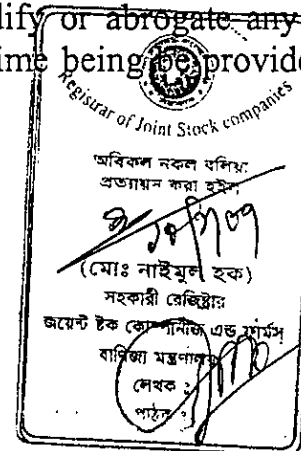 lify or abrogate any
ime being be provide
Registrar of Joint Stock companies
অবিকল নকল বলিয়া
প্রত্যায়ন করা হইল
(মোঃ নাইমুল হক)
সহকারী রেজিষ্ট্রার
জয়েন্ট ষ্টক কোম্পানীজ এন্ড ফার্মস্
বাণিজ্য মন্ত্রণালয়
লেখক :
পাঠক :